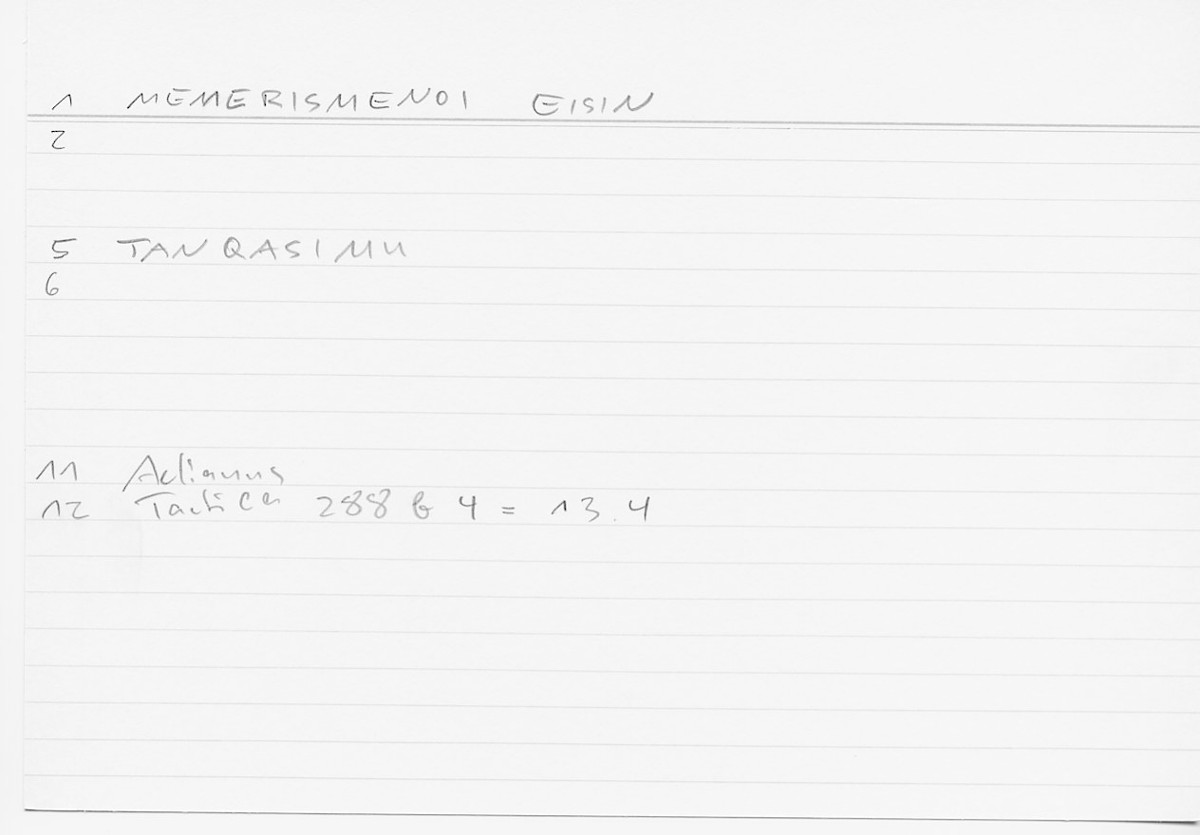 1 MEMERISMENOI EISIN
2
5 TANQASIMU
6
11 Aelianus
12 Tactica 288 b 4 = 13.4